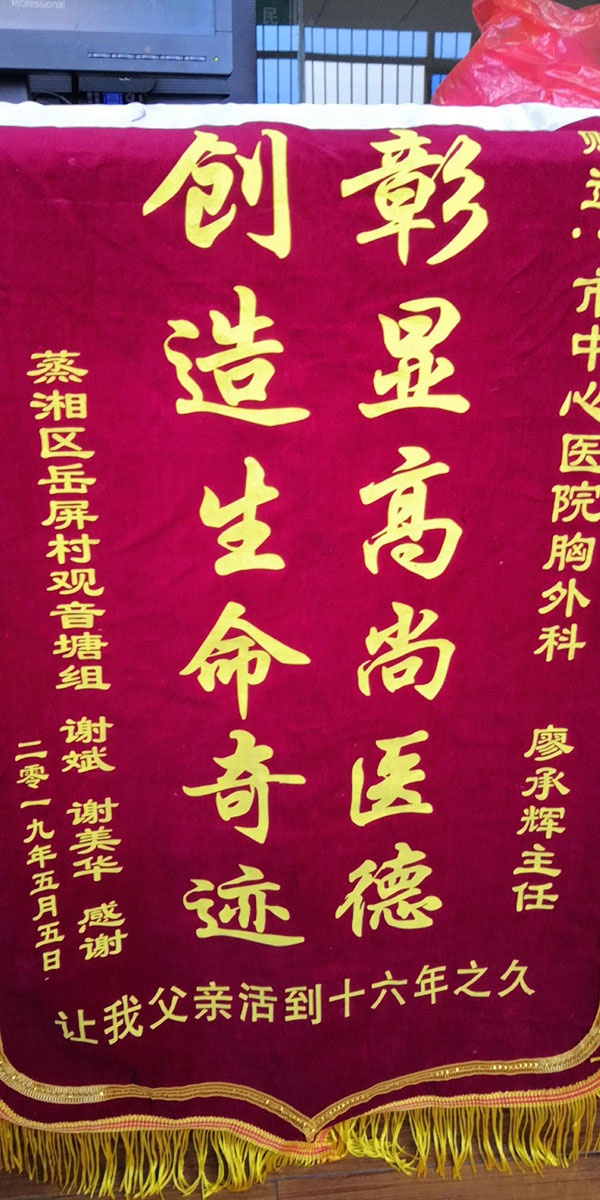 市中心医院胸外科 廖承辉主任
彰显高尚医德
创造生命奇迹
蒸湘区岳屏村观音塘组 谢斌 谢美华 感谢
二零一九年五月五日
让我父亲活到十六年之久
Professional
民